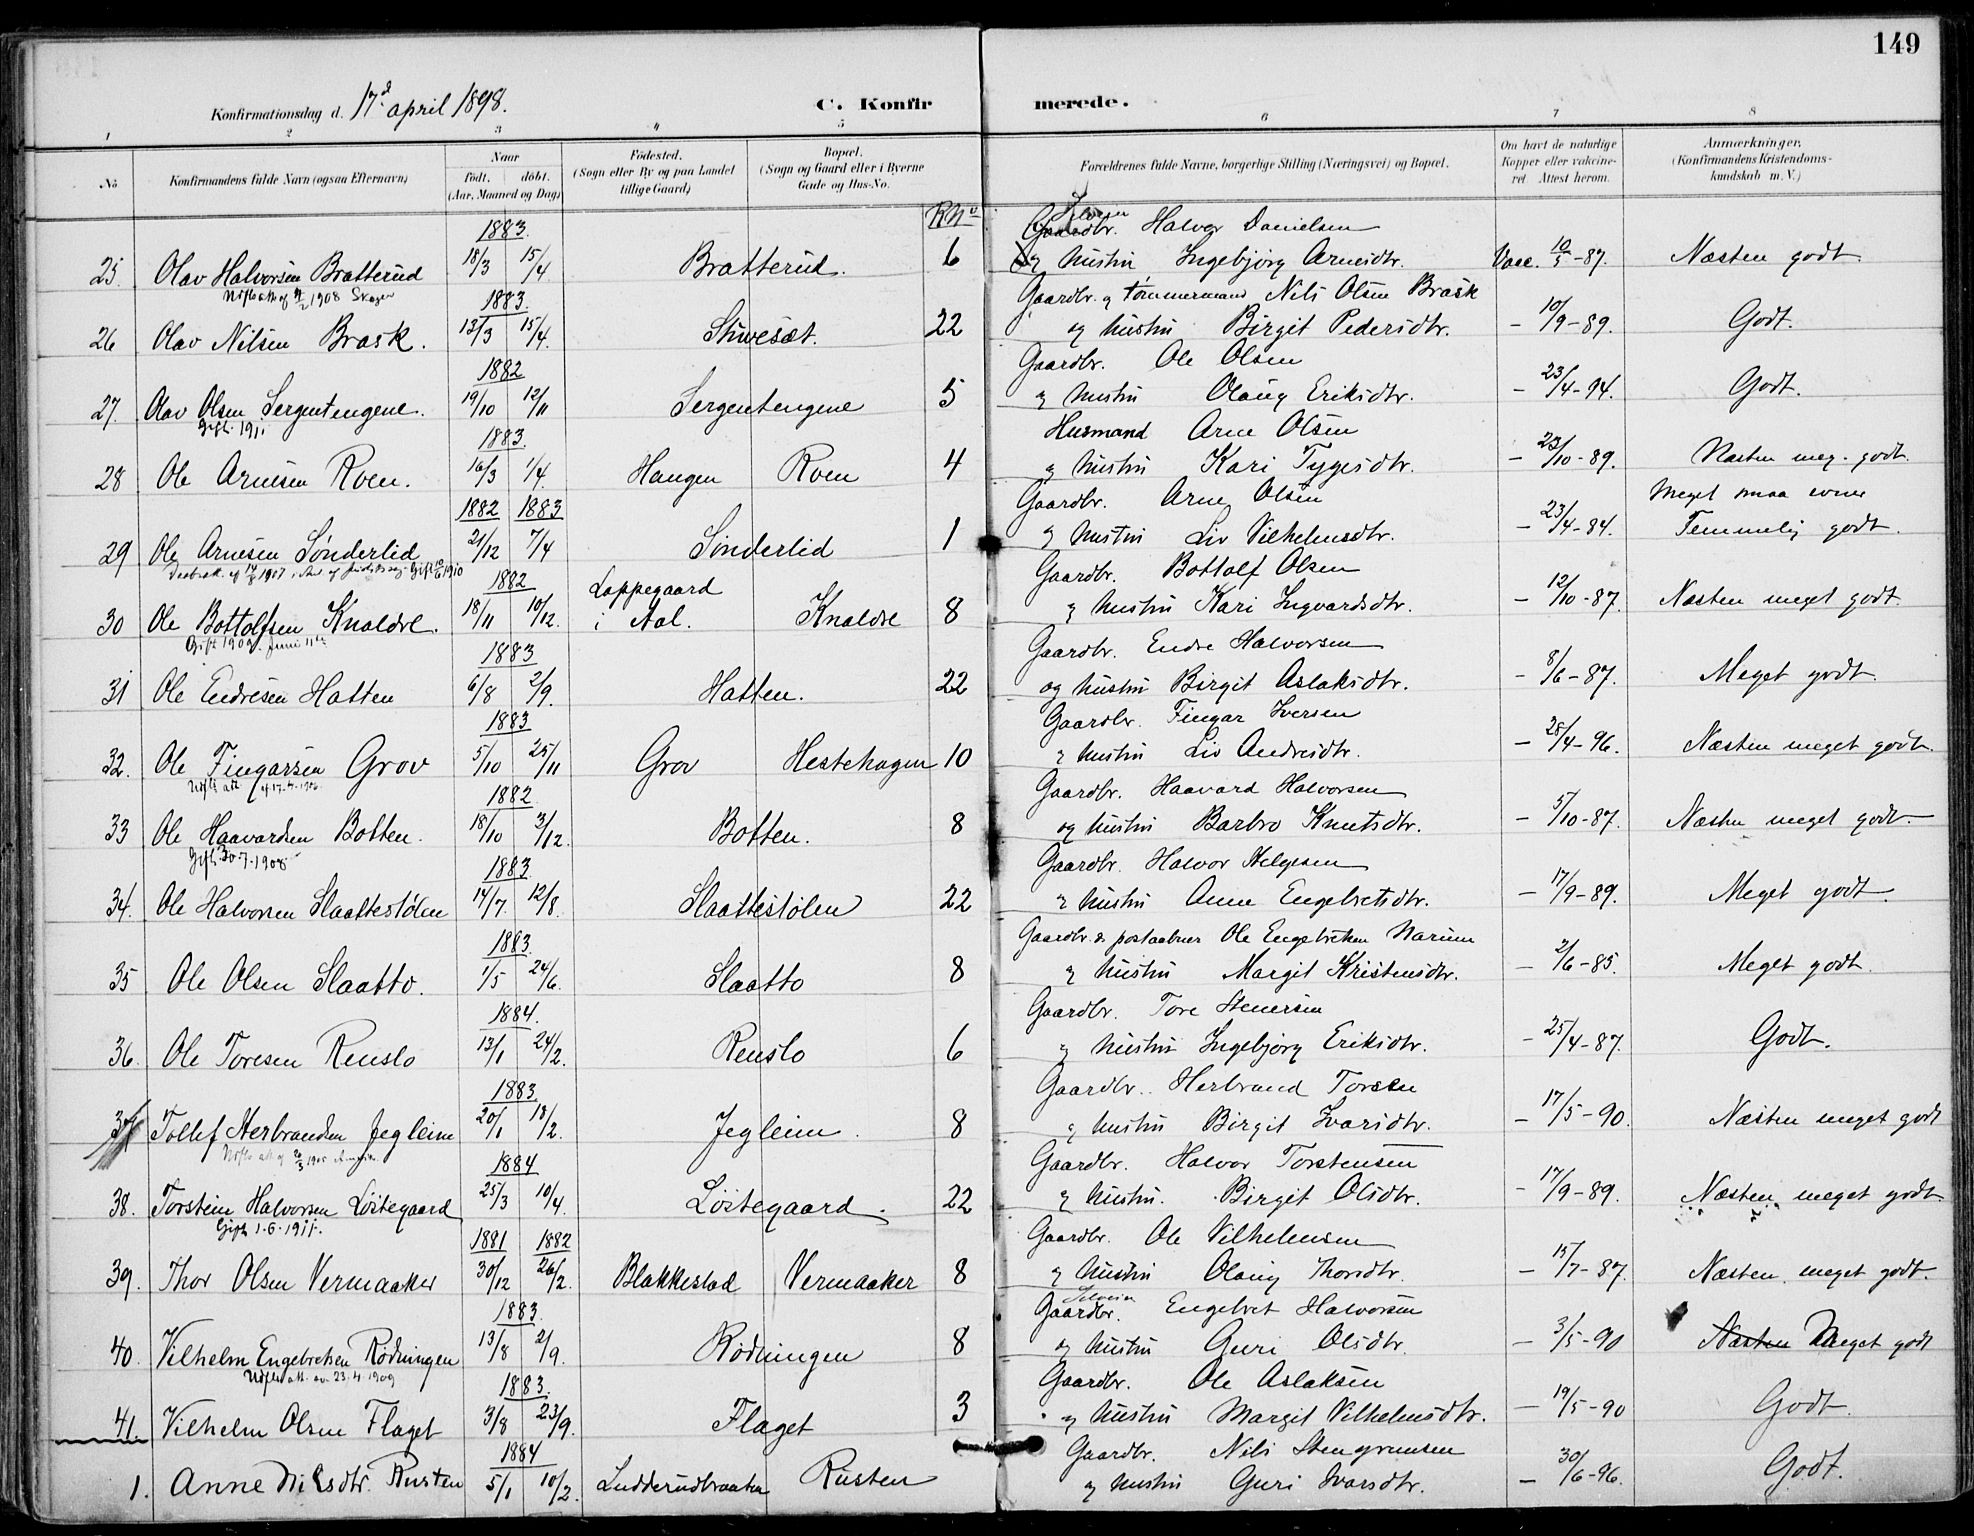 149
Konfirmationsdag d. 17d april 1898.
C. Konfirmerede.
1 2 3 4 5 6 7 8
No
Konfirmandens fulde Navn (ogsaa Efternavn)
Naar
Født. døbt.
(Aar, Maaned og Dag)
Fødested.
(Sogn eller By og paa Landet
tillige Gaard)
Bopæl.
(Sogn og Gaard eller i Byerne
Gade og Hus-No.
Forældrenes fulde Navne, borgerlige Stilling (Næringsvei) og Bopæl.
Om havt de naturlige
Kopper eller vakcine-
ret Attest herom.
Anmærkninger.
(Konfirmandens Kristendoms-
kundskab m. V.)
1883. Gaardbr. Halvor Danielsen
25. Olav Halvorsen Bratterud 18/3 15/4. Bratterud. 6 og hustru Ingebjørg Arnesdtr. Vacc. 10/5-87. Næsten godt.
1908
1883. Gaardbr. og tømmermand Nils Olsen Brask
26 Olav Nilsen Brask. 13/3 15/4. Stuvesæt. 22 og hustru Birgit Pedersdtr. – 10/9-89. Godt.
1882 Gaardbr. Ole Olsen
27. Olav Olsen Sergentengene. 19/10 12/11 Sergentengene 5 og hustru Olaug Eriksdtr. – 23/4-94. Godt.
Gift. 1911
1883. Husmand Arne Olsen
28 Ole Arnesen Roen. 16/3 1/4. Haugen Roen 4 og hustru Kari Tygesdtr. – 23/10-89. Næsten meg. godt.
1882 1883 Gaardbr. Arne Olsen Meget smaa evner
29 Ole Arnesen Sønderlid 21/12 7/4 Sønderlid 1 og hustru Liv Vilhelmsdtr. – 23/4-84. Temmelig godt.
1907 1910
1882 Loppegaard Gaardbr. Bottolf Olsen
30 Ole Bottolfsen Knaldre. 18/11 10/12. i Aal. Knaldre 8 og hustru Kari Ingvardsdtr. – 12/10-87. Næsten meget godt.
Gift 1909. Juni 11te
1883 Gaardbr. Endre Halvorsen
31 Ole Endresen Hatten 6/8 2/9. Hatten. 22 og hustru Birgit Aslaksdtr. – 8/6-87. Meget godt.
1883 Gaardbr. Fingar Iversen
32. Ole Fingarsen Grov 5/10 25/11 Grov Hestehagen 10 og hustru Liv Andresdtr. – 28/4-96. Næsten meget godt.
1882. Gaardbr. Haavard Halvorsen
33 Ole Haavardsen Botten. 18/10 3/12. Botten. 8 og hustru Barbro Knutsdtr. – 5/10-87. Næsten meget godt.
Gift 30.7.1908
1883. Gaardbr. Halvor Helgesen
34. Ole Halvorsen Slaattestølen 14/7. 12/8. Slaattestølen 22 og hustru Anne Engebretsdtr. – 17/9-89. Meget godt.
1883. Gaardbr. & postaabner Ole Engebretsen Narum
35 Ole Olsen Slaatto. 1/5 24/6. Slaatto 8 og hustru Margit Kristensdtr. – 2/6-85. Meget godt.
1884. Gaardbr. Tore Stenersen
36. Ole Toresen Renslo 13/1 24/2. Renslo 6 og hustru Ingebjørg Eriksdtr. – 25/4-87. Godt.
1883 Gaardbr. Herbrand Torsen
37 Tollef Herbrandsen Jegleim 20/1 18/2. Jegleim. 8 og hustru Birgit Ivarsdtr. – 17/5-90. Næsten meget godt
1884 Gaardbr. Halvor Torstensen
38. Torstein Halvorsen Løstegaard 25/3 10/4. Løstegaard. 22 og hustru. Birgit Olsdtr. – 17/9-89. Næsten meget godt
Gift 1.6.1911.
1881 1882 Gaardbr. Ole Vilhelmsen
39. Thor Olsen Vermaaker 30/12 26/2. Blakkestad Vermaaker 8 og hustru Olaug Thorsdtr. – 15/7-87. Næsten meget godt.
1883. Gaardbr. Engebret Halvorsen
40. Vilhelm Engebretsen Rødningen 13/8 2/9. Rødningen 8 og hustru Guri Olsdtr. – 3/5-90 Næsten Meget godt
23.4.1909
1883. Gaardbr. Ole Aslaksen
41. Vilhelm Olsen Flaget 3/8 23/9. Flaget 3 og hustru Margit Vilhelmsdtr. – 19/5-90 Godt.
1884 Gaardbr. Nils Stengrimsen
1. Anne Nilsdtr. Rusten 5/1 10/2. Ludderudbraaten Rusten og hustru Guri Ivarsdtr. – 30/6-96. Godt.